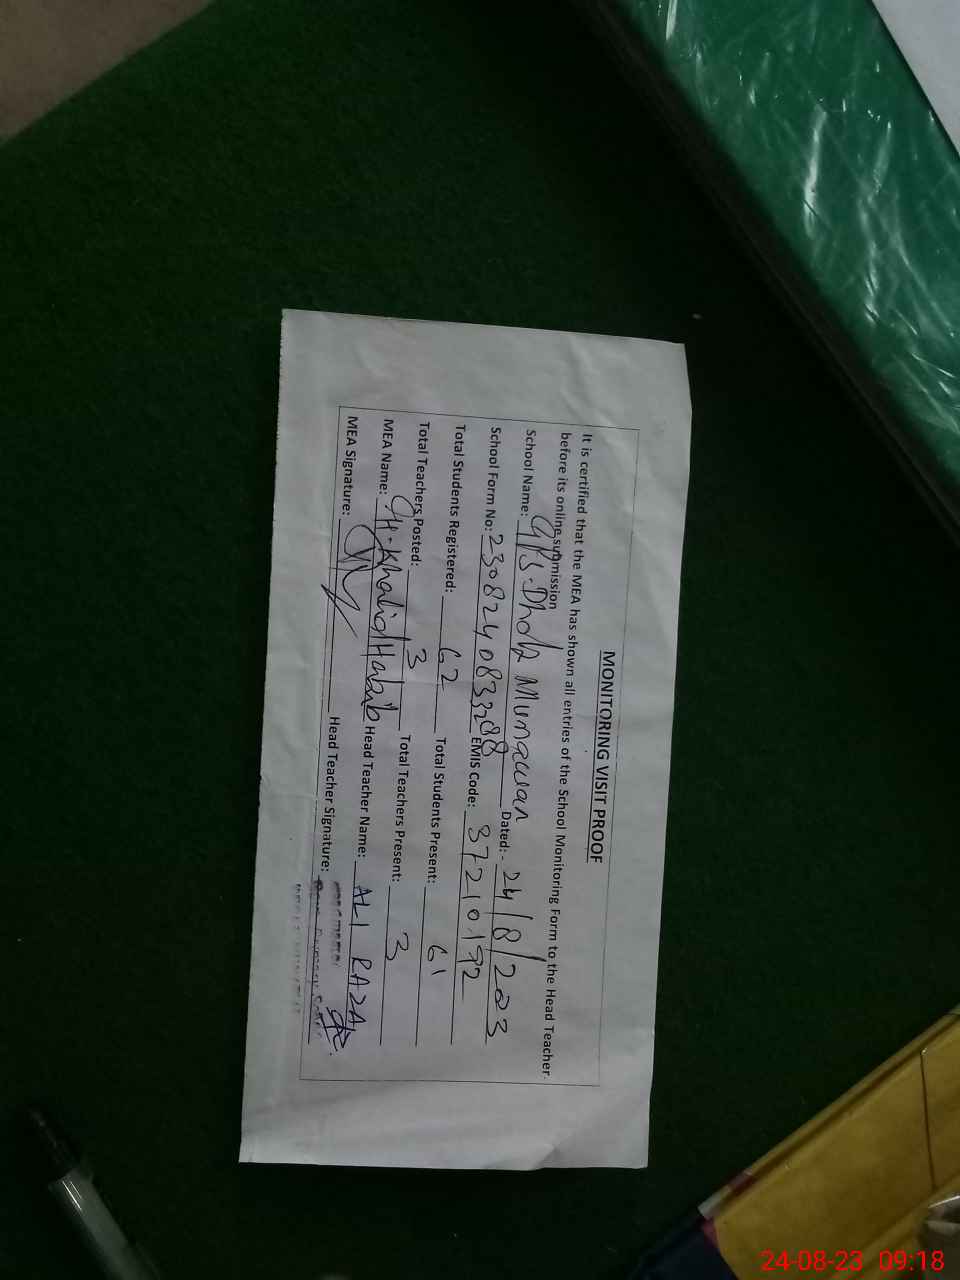 MONITORING VISIT PROOF
It is certified that the MEA has shown all entries of the School Monitoring Form to the Head Teacher
before its online submission
School Name: GPS. Dhok Munawan Dated:- 24/8/2023
School Form No: 2308240833288 EMIS Code: 37210192
Total Students Registered: 62 Total Students Present: 61
Total Teachers Posted: 3 Total Teachers Present: 3
MEA Name: CH. Khalid Habib Head Teacher Name: ALI RAZA
MEA Signature: Head Teacher Signature:
24-08-23 09:18